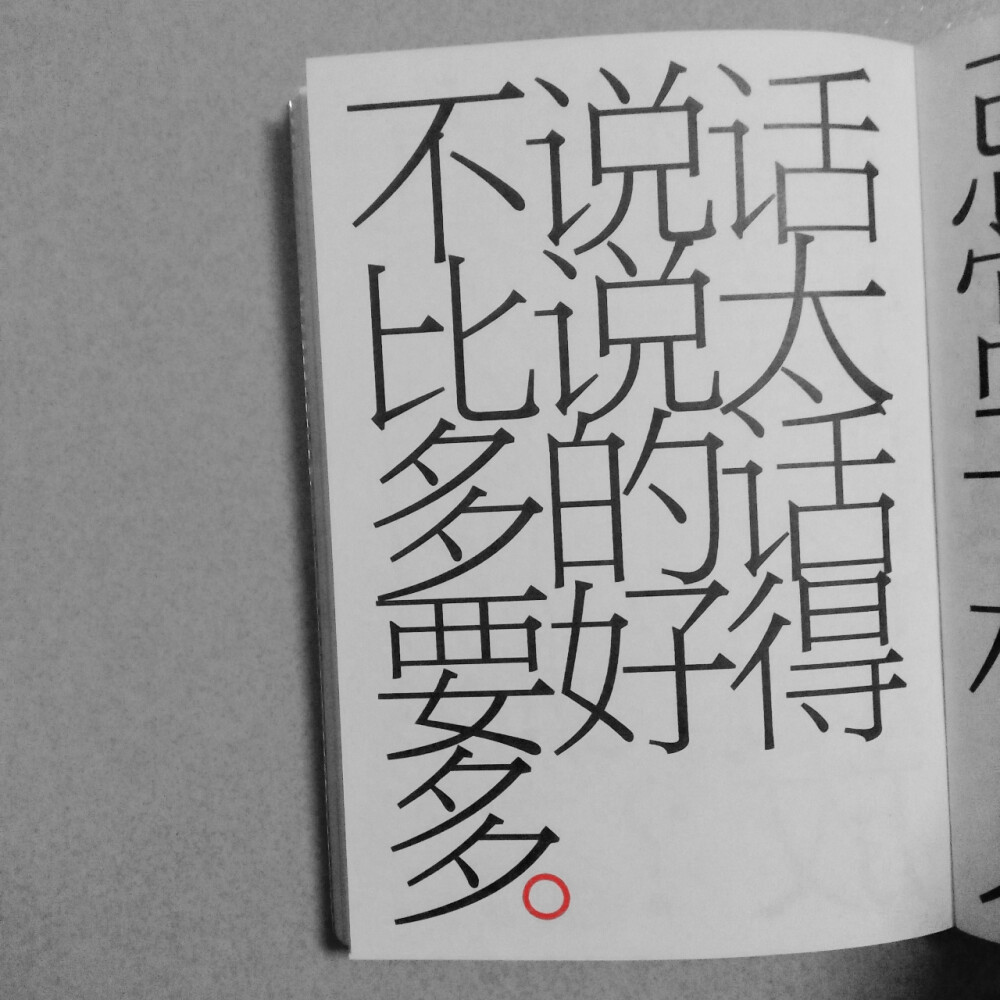 不说话
比说太
多的话
要好得
多。